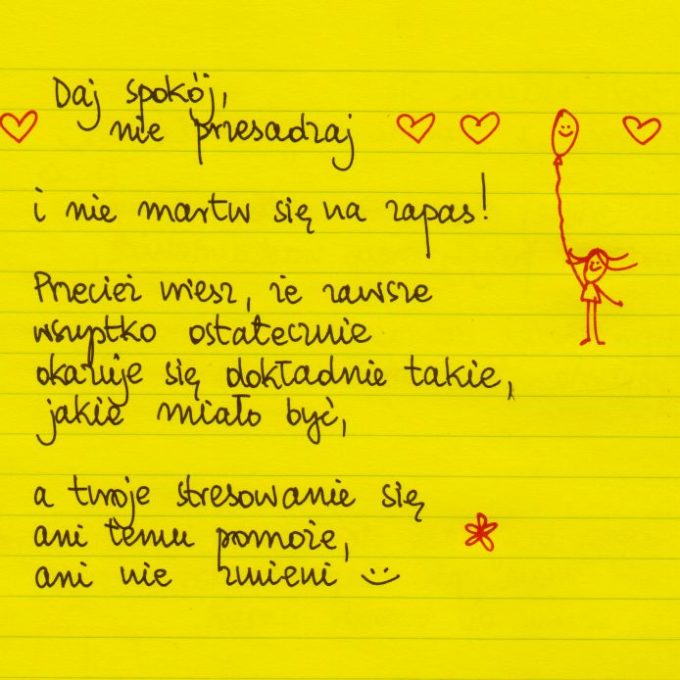 Daj spokój,
nie przesadzaj
i nie martw się na zapas!
Przecież wiesz, że zawsze
wszystko ostatecznie
okazuje się dokładnie takie,
jakie miało być,
a twoje stresowanie się
ani temu pomoże,
ani nie zmieni